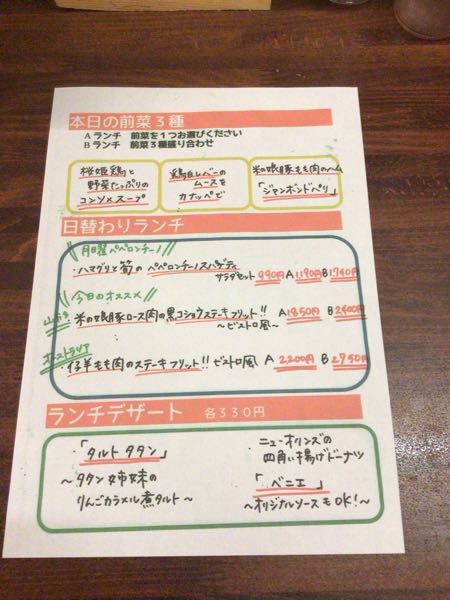 本日の前菜３種
Ａランチ　前菜を１つお選びください
Ｂランチ　前菜３種盛り合わせ
桜姫鶏と
野菜たっぷりの
コンソメスープ
鶏白レバーの
ムースを
カナッペで
米の娘豚もも肉のハム
「ジャンボンドパリ」
日替わりランチ
月曜ペペロンチーノ
・ハマグリと筍のペペロンチーノスパゲティ
サラダセット 990円 A 1190円 B 1740円
今日のオススメ
山形
・米の娘豚ロース肉の黒コショウステーキフリット!! A 1850円 B 2400円
～ビストロ風～
オーストラリア
・仔羊もも肉のステーキフリット!! ビストロ風 A 2200円 B 2750円
ランチデザート　各３３０円
・「タルトタタン」
～タタン姉妹の
りんごカラメル煮タルト～
ニューオリンズの
四角い揚げドーナツ
「ベニエ」
～オリジナルソースもOK!～